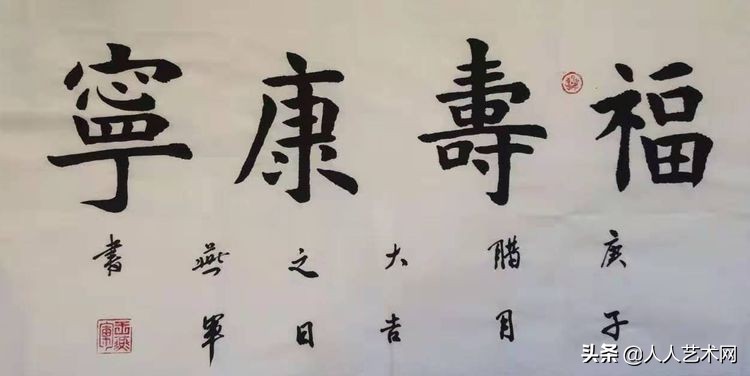 福壽康寧
庚子
腊月
大吉
之日
燕軍
書
头条 @人人艺术网